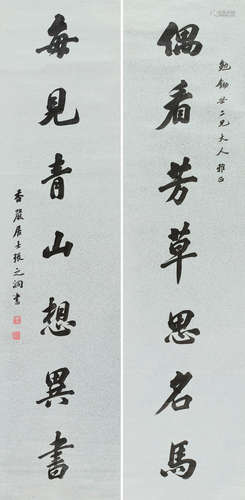 勉鋤世二兄大人雅正
偶看芳草思名馬
每見青山想異書
香嚴居士張之洞書